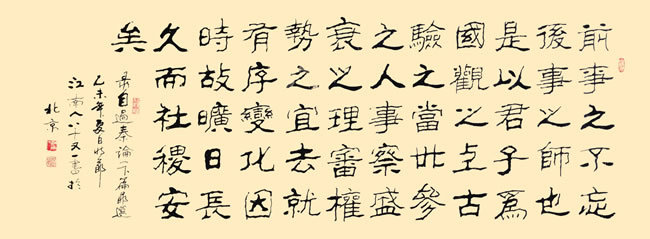 前事之不忘
後事之師也
是以君子爲
國觀之上古
驗之當世參
之人事察盛
衰之理審權
勢之宜去就
有序變化因
時故曠日長
久而社稷安
矣
自過秦論下篇
乙未年夏日
江南人八十又一書於
北京